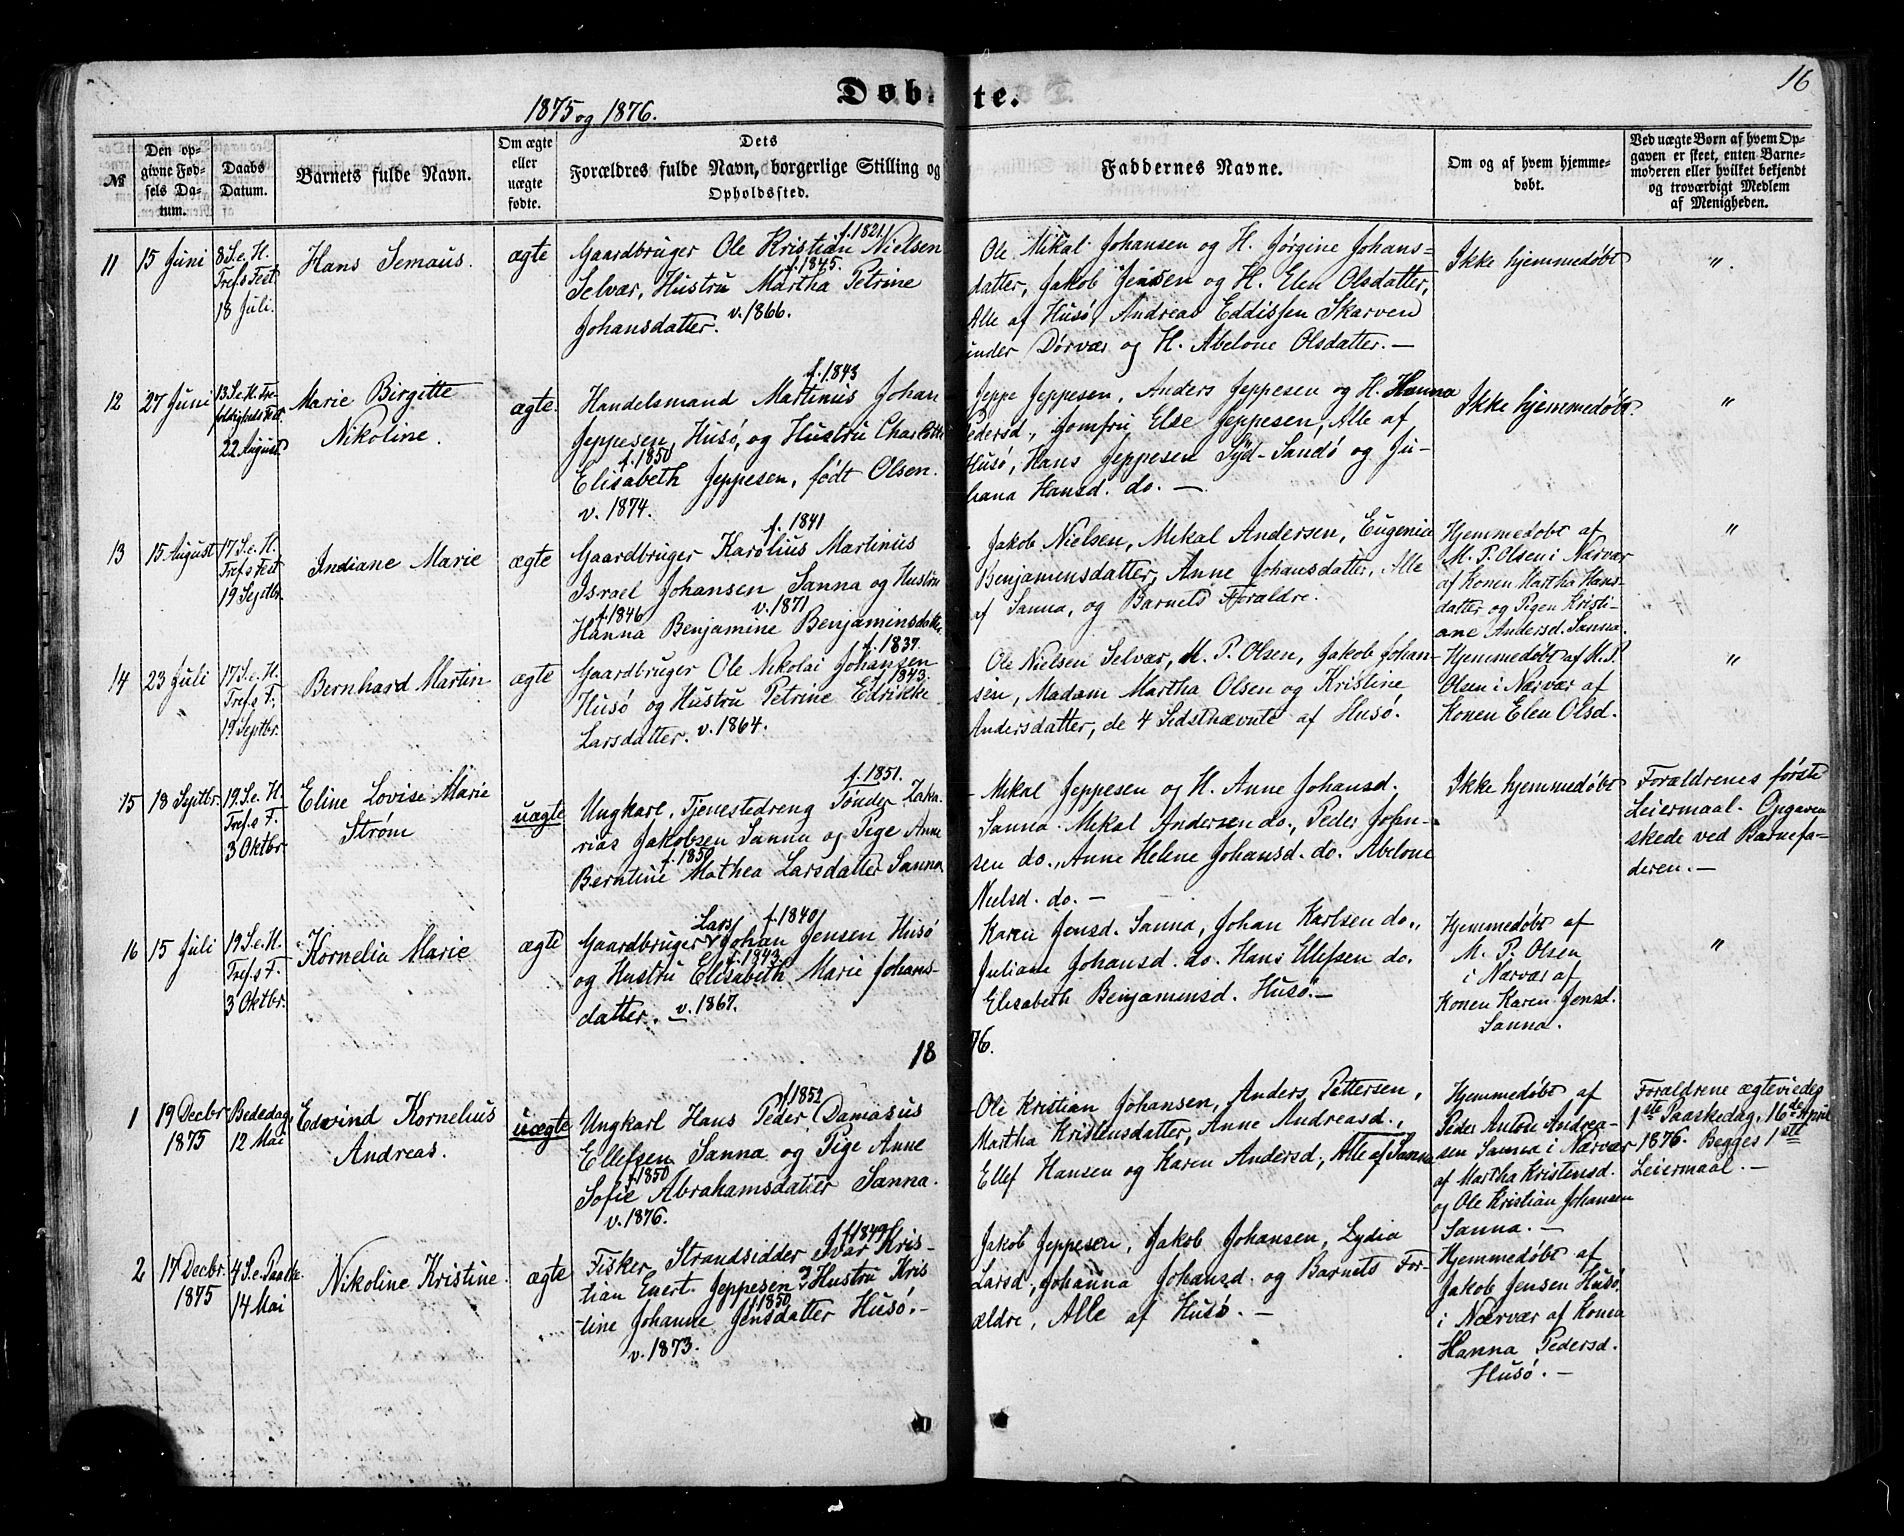 16
Døbte.
1875 og 1876.
№
Den opgivne Fødsels Datum.
Daabs Datum.
Barnets fulde Navn.
Om ægte eller uægte fødte.
Dets Forældres fulde Navn, borgerlige Stilling og Opholdssted.
Faddernes Navne.
Om og af hvem hjemmedøbt.
Ved uægte Børn af hvem Opgaven er skeet, enten Barnemoderen eller hvilket bekjendt og troværdigt Medlem af Menigheden.
11
15 Juni
8 S. e. H.
Tref.s Fest
18 Juli.
Hans Semaus.
ægte
f. 1821.
Gaardbruger Ole Kristian Nielsen
f. 1845.
Selvær, Hustru Martha Petrine
Johansdatter. v. 1866.
Ole Mikal Johansen og H. Jørgine Johans-
datter, Jakob Jensen og H. Elen Olsdatter,
Alle af Husø, Andreas Eddissen Skarven
under Dørvær og H. Abelone Olsdatter. —
Ikke hjemmedøbt
"
12
27 Juni
13 S. e. H. Tre-
foldigheds Fest.
22 August
Marie Birgitte
Nikoline.
ægte.
f. 1843
Handelsmand Martinus Johan
Jeppesen, Husø, og Hustru Charlotte
f. 1850
Elisabeth Jeppesen, født Olsen.
v. 1874.
Jeppe Jeppesen, Anders Jeppesen og H. Hanna
Pedersd., Jomfru Else Jeppesen, Alle af
Husø, Hans Jeppesen Syd-Sandø og Ju-
liana Hansd. do. —
Ikke hjemmedøbt.
"
13
15 August
17 S. e. H.
Tref.s Fest
19 Septbr.
Indiane Marie
ægte
f. 1841
Gaardbruger Karolius Martinus
Israel Johansen Sanna og Hustru
f. 1846 v. 1871
Hanna Benjamine Benjaminsdatter
Jakob Nielsen, Mekal Andersen, Eugenia
Benjamensdatter, Anne Johansdatter, Alle
af Sanna, og Barnets Forældre.
Hjemmedøbt af
M. P. Olsen i Nærvær
af Konen Martha Hans-
datter og Pigen Kristi-
ane Andersd. Sanna.
"
14
23 Juli
17 S. e. H.
Tref.s F.
19 Septbr.
Bernhard Martin
ægte
f. 1837.
Gaardbruger Ole Nikolai Johansen
f. 1843.
Husø og Hustru Petrine Edrikke
Larsdatter. v. 1864.
Ole Nielsen Selvær, M. P. Olsen, Jakob Johan-
sen, Madam Martha Olsen og Kristine
Andersdatter, de 4 Sidstnævnte af Husø.
Hjemmedøbt af M. P.
Olsen i Nærvær af
Konen Elen Olsd.
"
15
18 Septbr.
19. S. e. H.
Tref.s F.
3 Oktbr.
Eline Lovise Marie
Strøm
uægte
f. 1851.
Ungkarl, Tjenestedreng Tønder Zaka-
rias Jakobsen Sanna og Pige Anne
f. 1850
Berntine Mathea Larsdatter Sanna
Mekal Jeppesen og H. Anne Johansd.
Sanna. Mekal Andersen do., Peder Johan-
sen do., Anne Helene Johansd. do. Abelone
Nielsd. do. —
Ikke hjemmedøbt
Forældrenes første
Leiermaal. Opgaven
skede ved Barnefa-
deren. —
16
15 Juli
19 S. e. H.
Tref.s F.
3 Oktbr.
Kornelia Marie
ægte
Lars f. 1840
Gaardbruger Johan Jensen Husø
f. 1843
og Hustru Elisabeth Marie Johans-
datter. v. 1867.
Karen Jensd. Sanna, Johan Karlsen do.,
Juliane Johansd. do. Hans Ellefsen do.
Elisabeth Benjamensd. Husø. —
Hjemmedøbt af
M. P. Olsen
i Nærvær af
Konen Karen Jensd.
Sanna.
"
1876.
1
19 Decbr.
1875
Bededag
12 Mai
Edvind Kornelius
Andreas.
uægte
f. 1852
Ungkarl Hans Peder Damasus
Ellefsen Sanna og Pige Anne
f. 1850
Sofie Abrahamsdatter Sanna.
v. 1876.
Ole Kristian Johansen, Anders Pettersen,
Martha Kristensdatter, Anne Andreasd.,
Ellef Hansen og Karen Andersd., Alle af Sanna
Hjemmedøbt af
Peder Anton Andrea-
sen Sanna i Nærvær
af Martha Kristensd.
og Ole Kristian Johansen
Sanna. —
Forældrene ægteviedes
1ste Paaskedag, 16de April
1876. Begges 1ste
Leiermaal. —
2
17 Decbr.
1875
4 S. e. Paaske
14 Mai
Nikoline Kristine.
ægte
f. 1849
Fisker, Strandsidder Ivar Kris-
tian Enert Jeppesen og Hustru Kris-
f. 1850
tine Johanne Jensdatter Husø. —
v. 1873.
Jakob Jeppesen, Jakob Johansen, Lydia
Larsd., Johanna Johansd. og Barnets For-
ældre, Alle af Husø. —
Hjemmedøbt af
Jakob Jensen Husø,
i Nærvær af Konen
Hanna Pedersd.
Husø. —